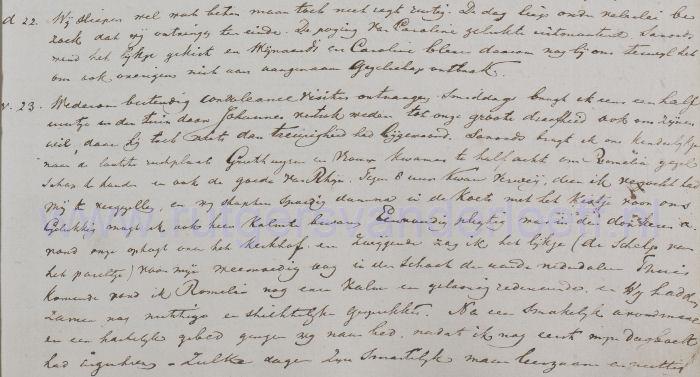 d 22. Wij sliepen wel wat beter maar toch niet regt rustig. De dag liep onder velerlei be-
zoek dat wij ontvingen ten einde. De poging van Caroline gelukte uitmuntend. 's avonds
werd het lijkje gekist en Wijnaendts en Caroline bleven daarom nog bij ons terwijl het
om ook overigens niet aan aangenaam Gezelschap ontbrak.
v. 23. Wederom bestendig condoleance visites ontvangen. Smiddags bragt ik eens een half
uurtje in den tuin door. Johannes vertrok weder tot onze groote droefheid ook om zijnen
wil, daar hij toch niets dan treurigheid had bijgewoond. Savonds bragt ik ons kinderlijkje
naar de laatste rustplaats Gerethuyzen en Vrouw kwamen te half acht om Romelia gezel-
schap te houden en ook de goede van Rhijn. Tegen 8 uur kwam Verweij, dien ik verzocht had
mij te vergezellen en wij stapten spoedig daarna in de Koets met het kistje voor ons
Gelukkig mogt ik ook hier kalmte hebben. Eenvoudig plegtig was in de donkeren a-
vond onze optogt over het Kerkhof en zwijgende zag ik het lijkje (de Schelp van
het pareltje) voor mijn weemoedig oog in den schoot der aarde nederdalen Thuis
komende vond ik Romelia nog even kalm en gelaten redenerende. en wij hadden
zamen nog nuttige en stichtelijke gesprekken. Na een smakelijk avondmaal
en een hartelijk gebed gingen wij naar bed, nadat ik nog eerst mijn dagboek
had ingeschreven. Zulke dagen zijn smartelijk maar leerzaam en nuttig